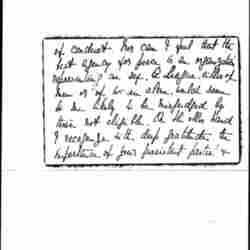 of conduct. Nor can I feel that the
best agency for peace is an organization
representing an
men or of women alone. which seem
to me likely to be misjudged by
those not eligible. On the other hand
I recognize with deep gratitude the
importance of your persistent protest &